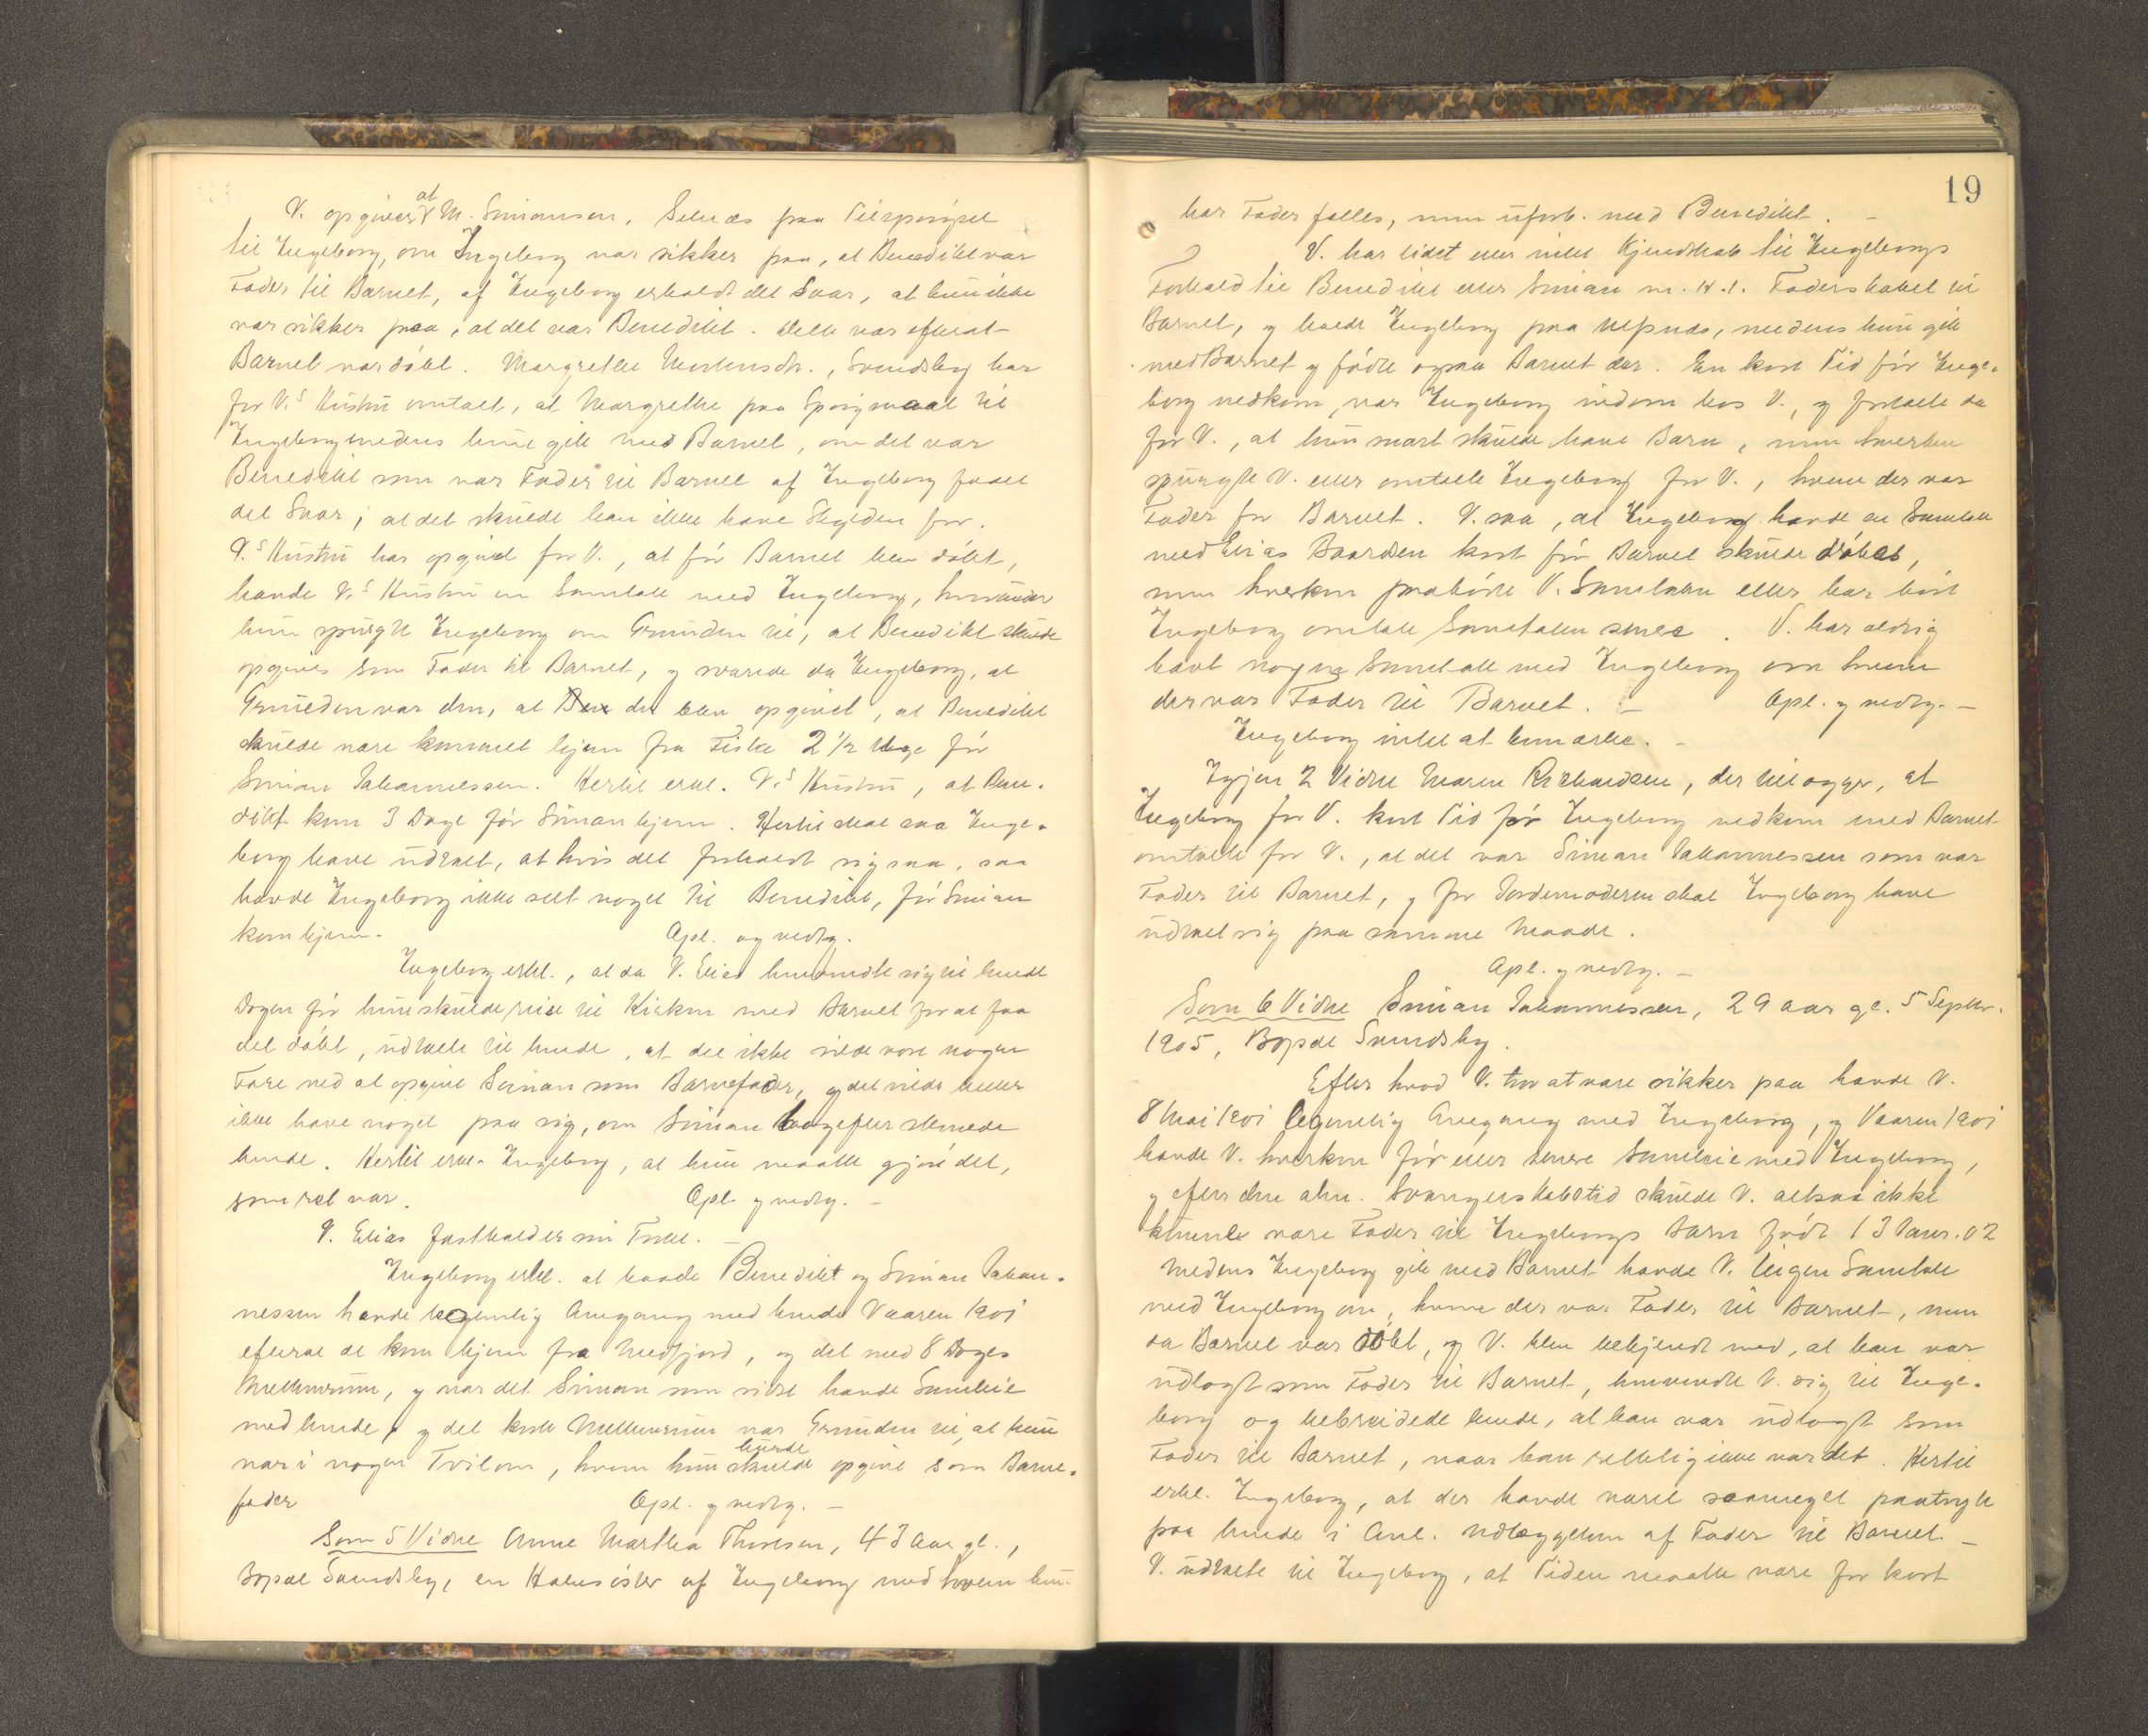 at
V. opgiver, M. Simonsen, Selnes paa Tilspørgsel
til Ingeborg, om Ingeborg var sikker paa, at Benedikt var
Fader til Barnet, af Ingeborg erholdt det Svar, at hun ikke
var sikker paa, at det var Benedikt. Dette var efterat
Barnet var døbt. Margrethe Mortensdr., Svendsby har
for V.s Hustru omtalt, at Margrethe paa Spørgsmaal til
Ingeborg medens hun gik med Barnet, om det var
Benedikt som var Fader til Barnet af Ingeborg faaet
det Svar, at det skulde han ikke have Skylden for.
V.s Hustru har opgivet for V., at før Barnet blev døbt,
havde V.s Hustru en Samtale med Ingeborg, hvorunder
hun spurgte Ingeborg om Grunden til, at Benedikt skulde
opgives som Fader til Barnet, og svarede da Ingeborg, at
Grunden var den, at det blev opgivet, at Benedikt
skulde være kommet hjem fra Fiske 2 1/2 Uge før
Simon Johannessen. Hertil erkl. V.s Hustru, at Bene-
dikt kom 3 Dage før Simon hjem. Hertil skal saa Inge-
borg have udtalt, at hvis det forholdt sig saa, saa
havde Ingeborg ikke selt noget til Benedikt, før Simon
kom hjem. Opl. og vedtg.
Ingeborg erkl., at da V. Elias henvendte sig til hende
Dagen før hun skulde reise til Kirken med Barnet for at faa
det døbt, udtalte til hende, at det ikke vilde være nogen
Fare ved at opgive Simon som Barnefader, og det vilde heller
ikke have noget paa sig, om Simon bagefter stevnede
hende. Hertil erkl. Ingeborg, at hun maatte gjøre det,
som ret var. Opl. og vedtg. –
V. Elias fastholder sin Forkl. –
Ingeborg erkl. at baade Benedikt og Simon Johan-
nessen havde legemlig Omgang med hende Vaaren 1901
efterat de kom hjem fra Mefjord, og det med 8 Dages
Mellemrum, og var det Simon som sidst havde Samleie
med hende, og det korte Mellemrum var Grunden til, at hun
var i nogen Tvil om, hvem hun skulde opgive som Barne-
burde
fader Opl. og vedtg. –
Som 5 Vidne Anne Martha Thoresen, 43 Aar gl.,
Bopæl Svendsby, en Halvsøster af Ingeborg med hvem hun
19
har Fader fælles, men uforb. med Benedikt. –
V. har lidet eller intet Kjendskab til Ingeborgs
Forhold til Benedikt eller Simon m. H. t. Faderskabet til
Barnet, og boede Ingeborg paa, medens hun gik
med Barnet og fødte ogsaa Barnet der. En kort Tid før Inge-
borg nedkom, var Ingeborg indom hos V., og fortalte da
for V., at hun snart skulde have Barn, men hverken
spurgte V. eller omtalte Ingeborg for V., hvem der var
Fader for Barnet. V. saa, at Ingeborg havde en Samtale
med Elias Baardsen kort før Barnet skulde døbes,
men hverken paahørte V. Samtalen eller har hørt
Ingeborg omtale Samtalen senere. V. har aldrig
havt nogen Samtale med Ingeborg om hvem
der var Fader til Barnet. – Opl. og vedtg. –
Ingeborg intet at bemærke. –
Igjen 2 Vidne Maren Richardsen, der tilføier, at
Ingeborg for V. kort Tid før Ingeborg nedkom med Barnet
omtalte for V., at det var Simon Johannessen som var
Fader til Barnet, og for Jordemoderen skal Ingeborg have
udtalt sig paa samme Maade.
Opl. og vedtg. –
Som 6 Vidne Simon Johannessen, 29 aar gl. 5 Septbr.
1905, Bopæl Svendsby.
Efter hvad V. tror at være sikker paa havde V.
8 Mai 1901 legemlig Omgang med Ingeborg, og Vaaren 1901
havde V. hverken før eller senere Samleie med Ingeborg,
og efter den alm. Svangerskabstid skulde V. altsaa ikke
kunne være Fader til Ingeborgs Barn født 13 Janr. 02
Medens Ingeborg gik med Barnet havde V. ingen Samtale
med Ingeborg om, hvem der var Fader til Barnet, men
da Barnet var døbt, og V. blev bekjendt med, at han var
udlagt som Fader til Barnet, henvendte V. sig til Inge-
borg og bebreidede hende, at han var udlagt som
Fader til Barnet, naar han rettelig ikke var det. Hertil
erkl. Ingeborg, at der havde været saameget paatrykt
paa hende i Anl. Udlæggelsen af Fader til Barnet. –
V. udtalte til Ingeborg, at Tiden maatte være for kort